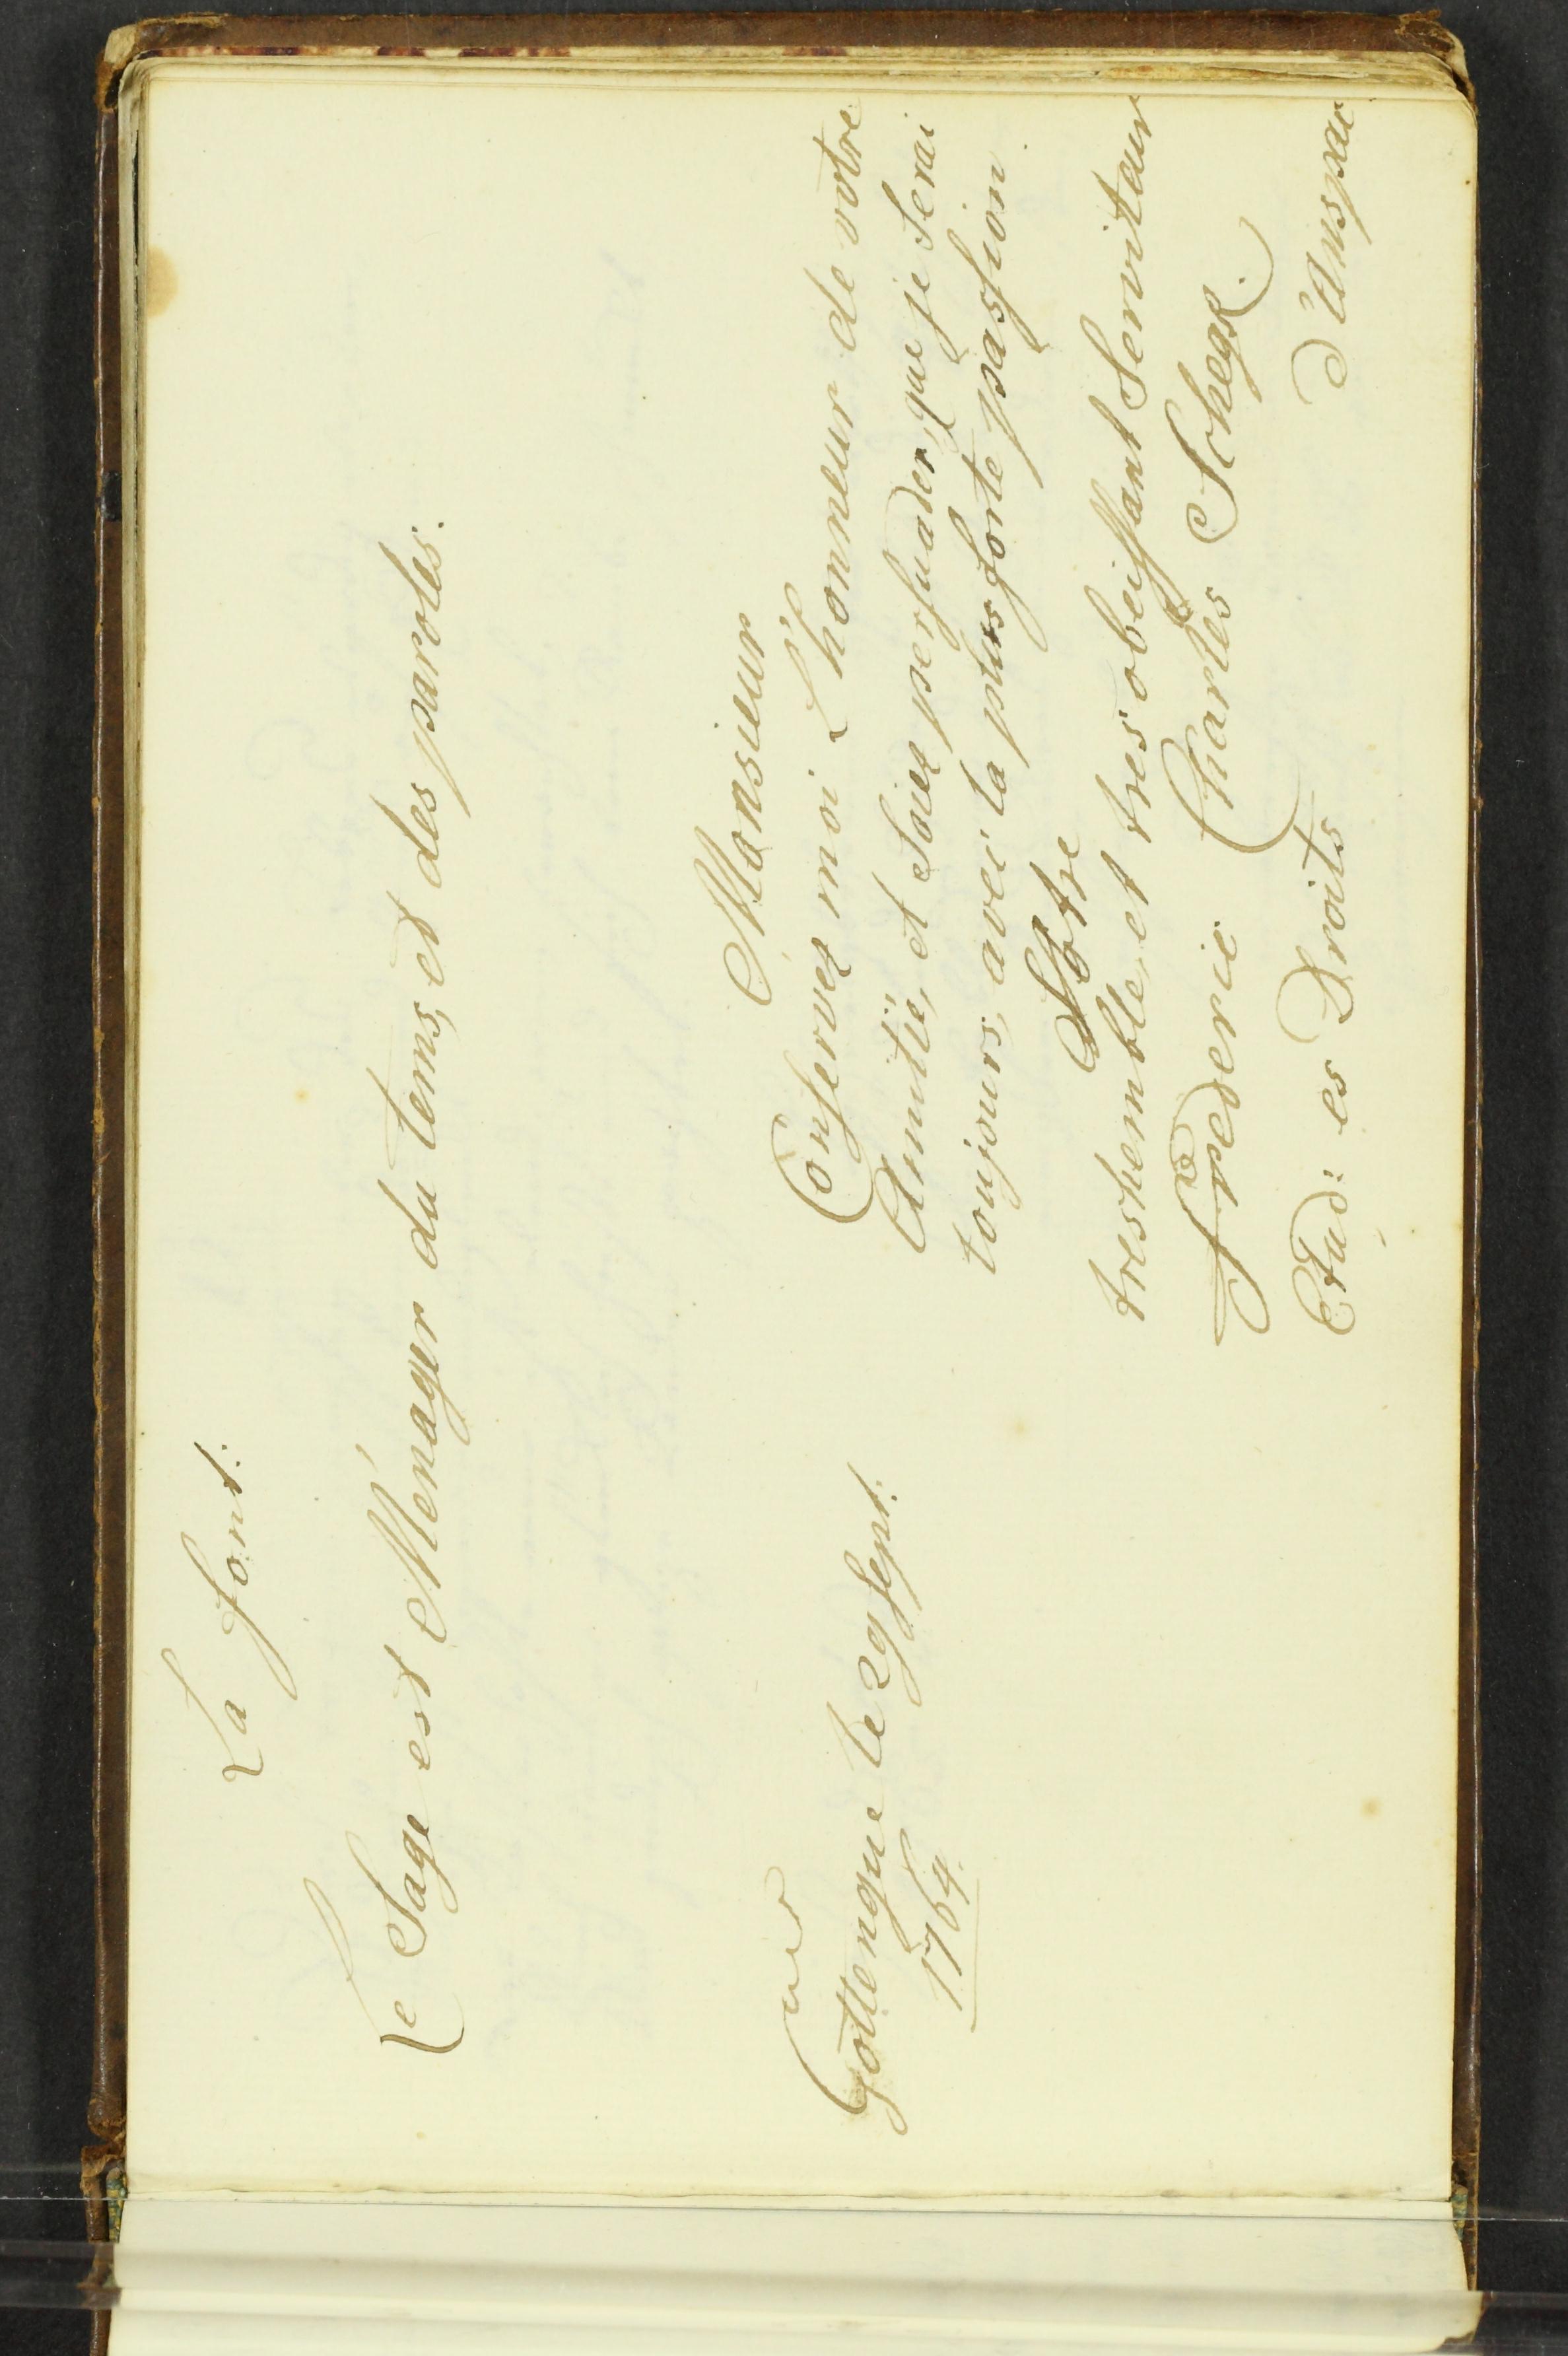 La font:
Le Sage est Ménager du tems, et des paroles.
Monsieur
Conservez moi L'honneur de votre
Amitie, et Soiez persuader, que je Serai
toujours, avec la plus forte passion
Votre
treshemble, et tres obeissant Serviteur
Frederic Charles Schegk.
Etud: es Droits d'Anspac
Gottengue le 29 Sept:
1764.